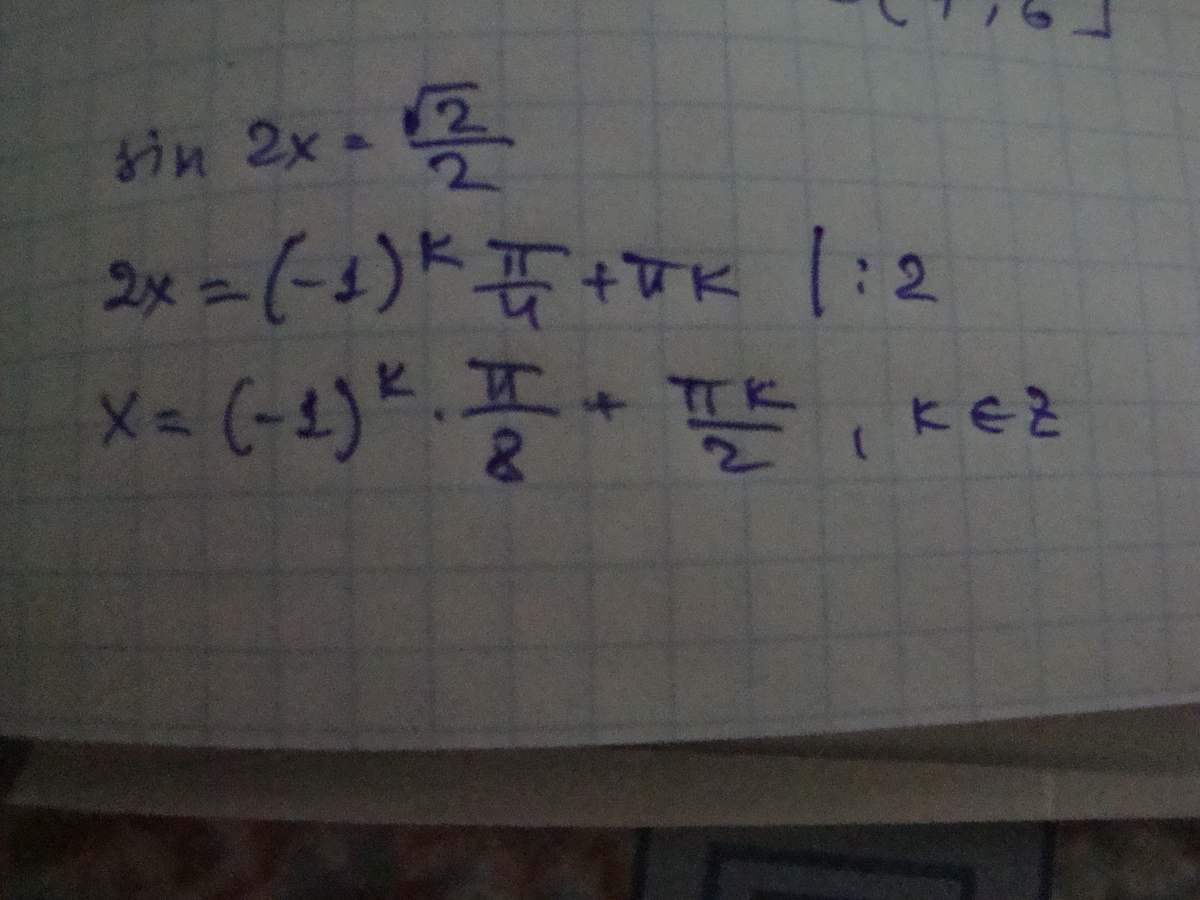 sin 2x = √2/2
2x = (-1)^k π/4 + πk | : 2
x = (-1)^k · π/8 + πk/2 , k ∈ Z